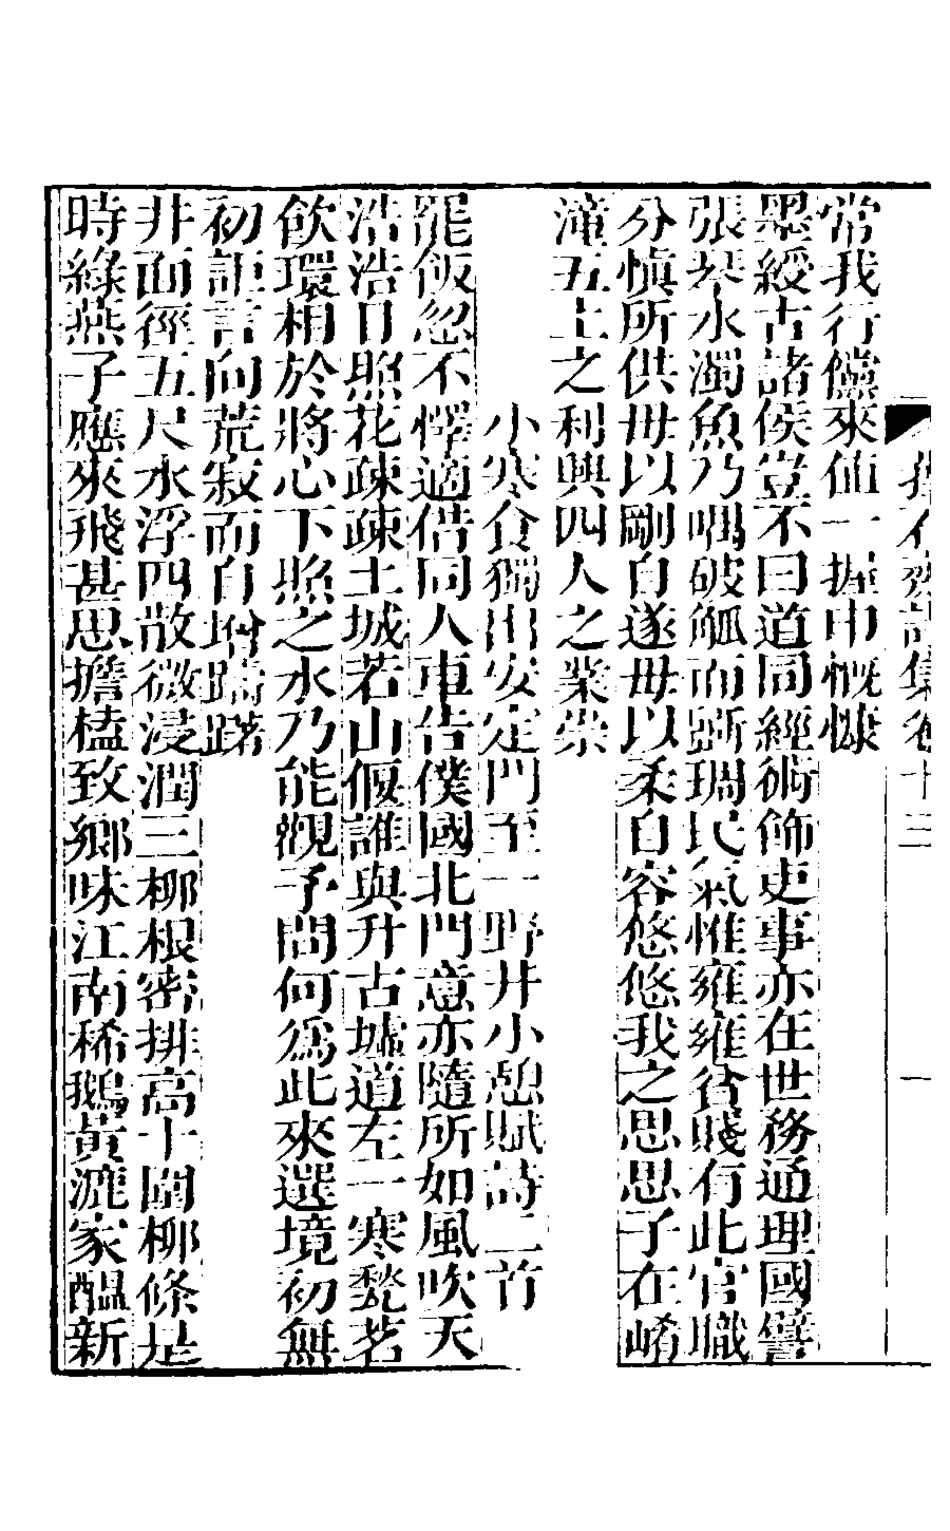 擇石齋詩集卷十三
一
常我行儻來值一握申慨慷
墨綬古諸侯豈不曰道同經術飾吏事亦在世務通理國譬
張琴水濁魚乃喁破觚而斲琱民氣惟雍雍貧賤有此官職
分愼所供毋以剛自遂毋以柔自容悠悠我之思思子在崤
潼五土之利興四人之業崇
小寒食獨出安定門至一野井小憩賦詩二首
罷飯忽不懌適借同人車告僕國北門意亦隨所如風吹天
浩浩日照花疎疎土城若山偃誰與升古墟道左一寒甃茗
飲環相於將心下照之水乃能觀予問何爲此來選境初無
初詎言向荒寂而自增躊躇
井面徑五尺水浮四散微浸潤三柳根密排高十圍柳條是
時綠燕子應來飛甚思擔榼致鄉味江南稀鵝黃漉家醞新